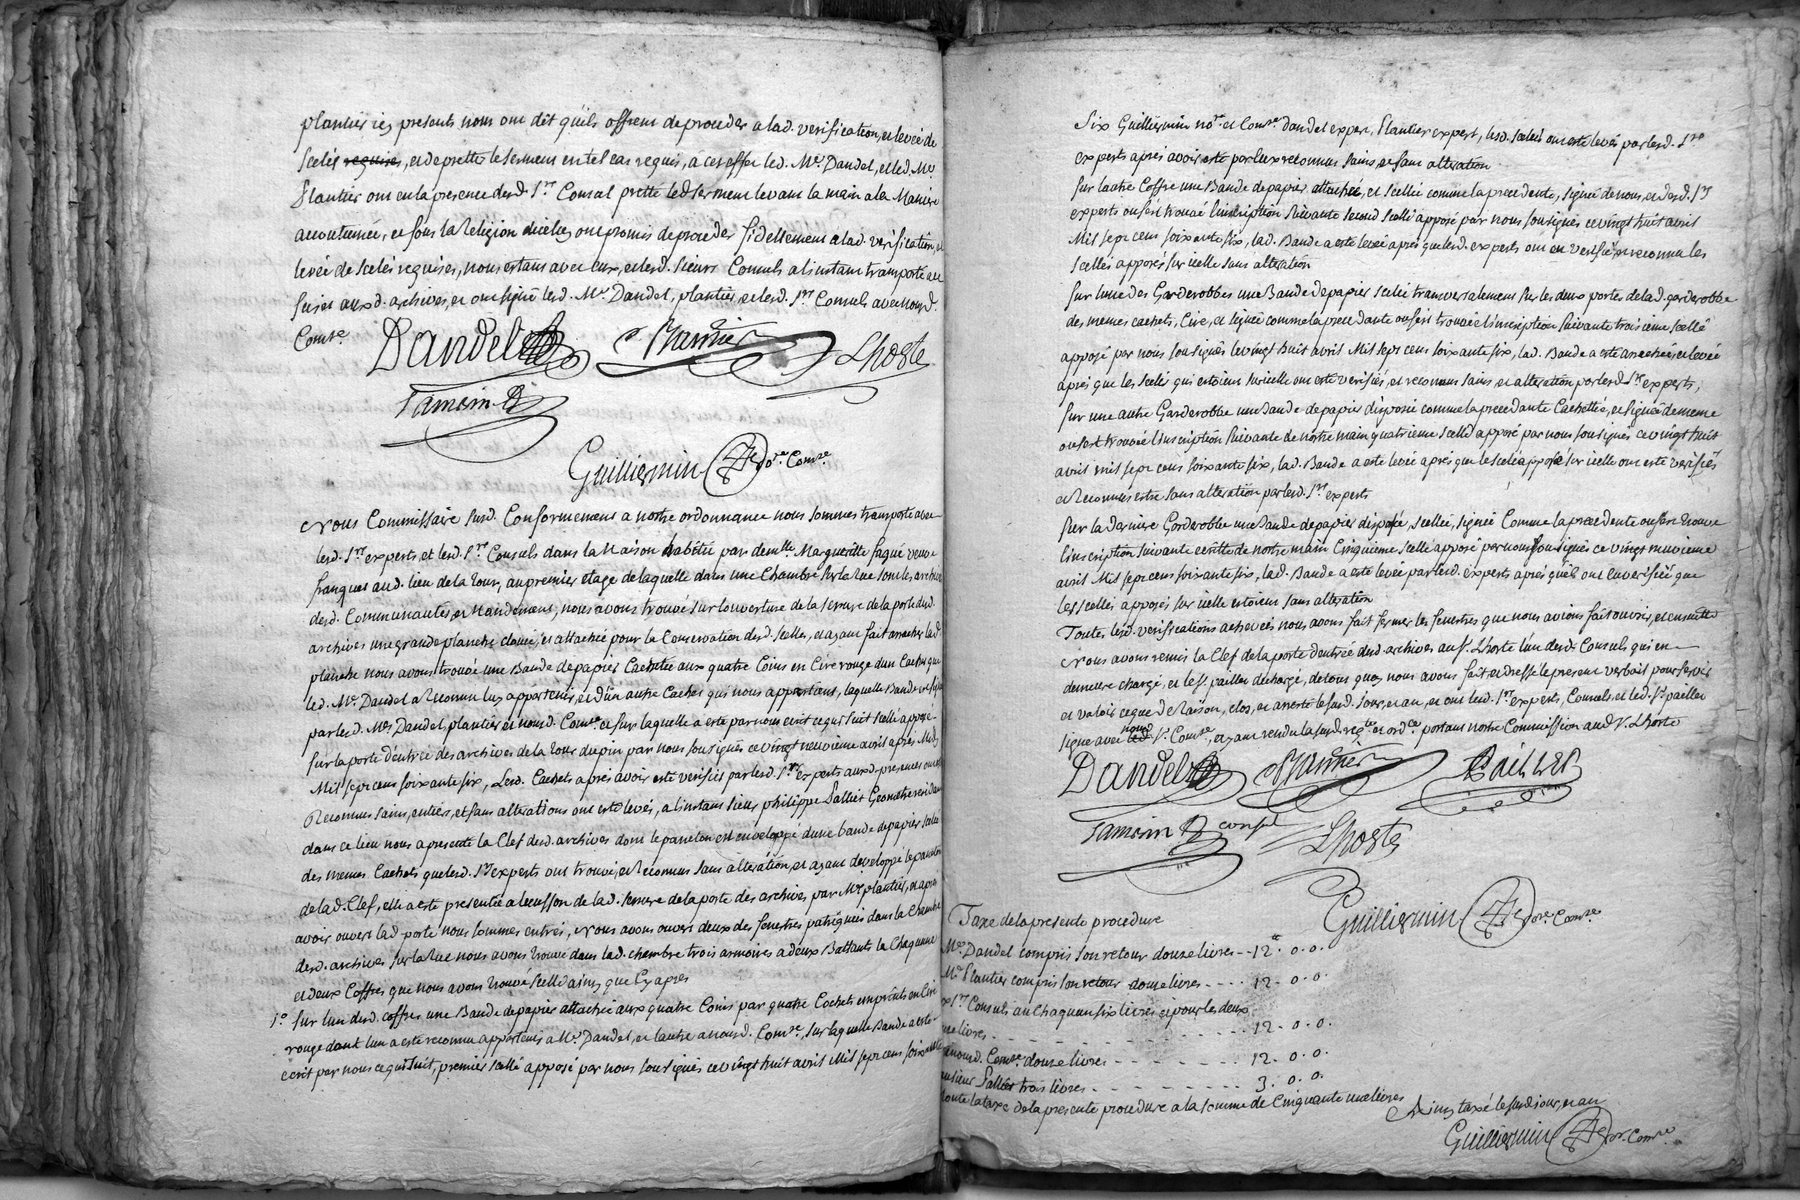 plantier icy presents nous ont dit qu'ils offrent de proceder a lad. verification, et levée de
scelés requises, et de pretter le serment en tel cas requis, a cet effet led. Me. Dandel, et led. Me.
Plantier ont en la presence desd. Srs. Consul pretté led serment levant la main a la Maniere
accoutumée, et sous la Religion d'icelluy ont promis de proceder fidellement a lad. verification, et
levée de scelés requises, nous estant avec eux, et lesd. sieurs Consuls a l'instant transporté au
susd. archives, et ont signé lesd. Me. Dandel, plantier, et lesd. Srs Consuls avec nousd.
Comre.
Dandel Plantier Lhoste
Tamoin
Guilliermin Nore. Comre.
Nous Commissaire susd. Conformement a notre ordonnance nous sommes transporté avec
lesd. Srs experts et lesd. Srs Consuls dans la Maison habitée par demlle Margueritte faqué veuve
franques aud. lieu de la Tour, au premier etage de laquelle dans une Chambre sur la Rue sont les archives
desd. Communautés, et Mandement, nous avons trouvé sur l'ouverture de la serrure de la porte desd.
archives une grande planche clouée, et attachée pour la Conservation desd. scellés, et ayant fait arracher lad.
planche nous avons trouvé une Bande de papier Cachetée aux quatre Coins en Cire rouge d'un Cachet que
led. Me. Dandel a Reconnu luy appartenir, et d'un autre Cachet qui nous appartient, laquelle Bande
par led. Me. Dandel, plantier et nousd. Comre. et sur laquelle a esté par nous ecrit ce qui suit scellé apposé
sur la porte d'entrée des archives de la Tour du pin par nous soussignés ce vingt neuvieme avril apres Midy
Mil sept cens soixante six, Lesd. Cachets apres avoir esté verifiés par lesd. Srs experts aux d. presences ont esté
Reconnus sains, entiers, et sans alterations ont esté levés, a l'instant sieur philippe Pallier Geometre
dans ce lieu nous a presenté la Clef desd. archives dont le paneton est enveloppé d'une bande de papier scellée
des memes Cachets que lesd. Srs experts ont trouvé, et Reconnus sans alteration, et ayant developpé le paneton
de lad. Clef, elle a esté presentée a l'ecusson de lad. serrure de la porte des archives, par Me. plantier, et apres
avoir ouvert lad porte nous sommes entrés, Nous avons ouvert deux des fenestres pratiquées dans la Chambre
desd. archives sur la Rue nous avons trouvé dans lad. chambre trois armoires a deux Battants la Chaqune
et deux Coffres que nous avons trouvé scellé ainsy que Cy apres
1o. Sur l'un desd. coffres une Bande de papier attachée aux quatre Coins par quatre Cachets empreints en Cire
rouge dont l'un a esté reconnu appartenir a Me. Dandel, et l'autre a nousd. Comre. sur laquelle Bande a esté
ecrit par nous ce qui suit, premier scellé apposé par nous soussignés ce vingt huit avril Mil sept cens soixante
Six Guilliermin nore. et Comre Dandel expert, Plantier expert, lesd. scelés ont esté levés par lesd. Srs
experts aprés avoir esté par eux reconnus sains, et sans alteration
Sur l'autre Coffre une Bande de papier attachée, et scellée comme la precedente, signée de nous, et desd. Srs
experts ou s'est trouvé l'inscription suivante second scellé apposé par nous soussignés ce vingt huit avril
Mil sept cens soixante six, lad. Bande a esté levée après que lesd. experts ont eu verifié, et reconnu les
scellés apposés sur icelle sans alteration
Sur l'une des Garderobbes une Bande de papier scelée transversalement sur les deux portes de lad. garderobbe
des memes cachets, Cire, et signée comme la precedante ou s'est trouvé l'inscription suivante troisieme scellé
apposé par nous soussignés le vingt huit avril Mil sept cens soixante six, lad. Bande a esté arrachée, et levée
après que les scelés qui estoient sur icelle ont esté verifiés, et reconnus sains et alteration par lesd. Srs experts,
Sur une autre Garderobbe une Bande de papier disposée comme la precedante Cachettée, et signée de meme
ou s'est trouvée l'inscription suivante de notre main quatrieme scellé apposé par nous soussignés ce vingt huit
avril mil sept cens soixante six, lad. Bande a esté levée après que le scelé apposé sur icelle ont esté verifiés
et Reconnus estre sans alteration par lesd. Srs experts
Sur la derniere Garderobbe une Bande de papier disposée, scellée, signée Comme la precedente ou s'est trouvé
l'inscription suivante ecritte de notre main Cinquieme scellé apposé par nous soussignés ce vingt neuvieme
avril Mil sept cens soixante six, lad. Bande a esté levée par lesd. experts après qu'ils ont eu verifié que
les scellés apposés sur icelle estoient sans alteration
Toutes lesd. verifications achevées nous avons fait fermer les fenestres que nous avions fait ouvrir, et ensuitte
Nous avons remis la Clef de la porte d'entrée desd. archives au Sr. Lhoste l'un desd. Consuls qui en
demeure chargé, et le Sr. paillet decharge, de tout quoy nous avons fait et dressé le present verbail pour servir
et valoir ce que de Raison, clos, et arresté le susd. Jour, et an, et ont lesd. Srs experts, Consuls, et led. Sr. paillet
signé avec nous led. Sr. Comre, et ayant rendu la susd. reqte. et ordce. portant notre Commission aud Sr. Lhoste
Dandel Plantier Paillet
Tamoin consul Lhoste
Guilliermin Nore. Comre.
Taxe de la presente procedure
Me. Dandel compris son retour douze livres -- 12tt. 0. 0.
Me. Plantier compris son retour douze livres ---- 12. 0. 0.
Srs Consuls au Chaqun six livres et pour les deux
livres - - - - 12. 0. 0.
a nousd. Comre. douze livres - - - 12. 0. 0.
sieur Pallier trois livres - - - - 3. 0. 0.
toute la taxe de la presente procedure a la somme de Cinquante une livres
Ainsy taxé le susd jour, et an
Guilliermin nore. Comre.